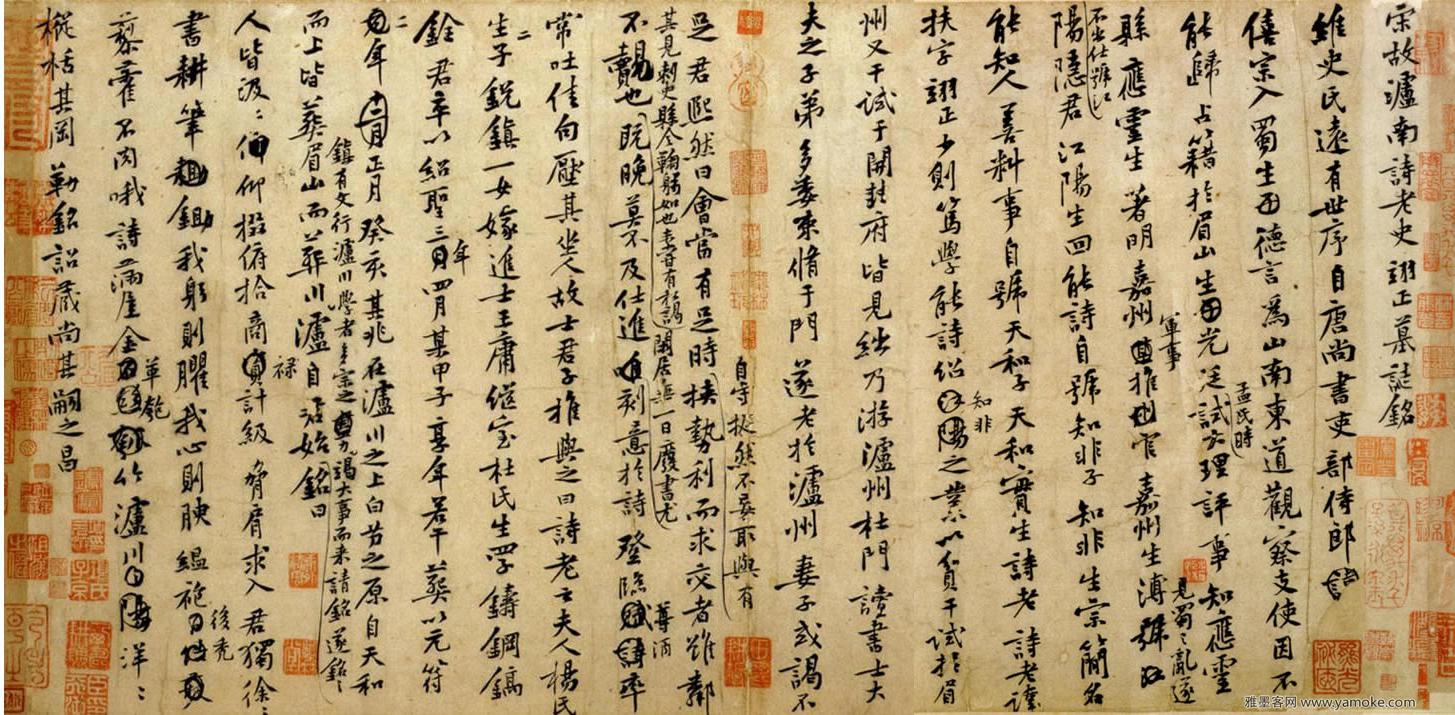 宋故瀘南詩老史翊正墓誌銘
維史氏遠有世序自唐尚書吏部侍郎
僖宗入蜀生曰德言為山南東道觀察支使因不
能歸占籍於眉山生曰光廷試大理評事知應靈
孟氏時
縣應靈生著明嘉州推官嘉州生溥
軍事
見蜀之亂遂
不出仕號江
陽隱君江陽生回能詩自號知非子知非生宗簡名
能知人善料事自號天和子天和實生詩老詩老諱
扶字翊正少則篤學能詩紹之業以貢干試於眉
知非
州又干試于開封府皆見絀乃游瀘州杜門讀書士大
夫之子弟多委束脩于門遂老於瀘州妻子或謂不
自守挺然不妄取與有
足君熙然曰會當有足時挾勢利而求交者雖鄰
其見刺史縣令翰躬如也未嘗有私謁閑居無一日廢書尤
不覿也既晚莫不及仕進唯刻意於詩登臨率
樽酒
常吐佳句壓其坐人故士君子推與之曰詩老云夫人楊氏
生二子銳鎮一女嫁進士王庸繼室杜氏生四子鑄鋼鎬
銓君卒以紹聖三年四月某甲子享年若干葬以元符
二年正月癸亥其兆在瀘川之上白芀之原自天和
鎮有文行瀘川學者多宗之竭大事而來請銘遂銘之
而上皆葬眉山而葬川瀘自始銘曰
祿
人皆汲汲俯仰掇俯拾商計級脅肩求入君獨徐徐
書耕筆耡我躬則臞我心則腴縕袍
後禿
藜藿不肉哦詩滿屋金竹瀘川洋洋
革匏
樅栝其岡勒銘詔藏尚其嗣之昌
雅墨客网 www.yamoke.com